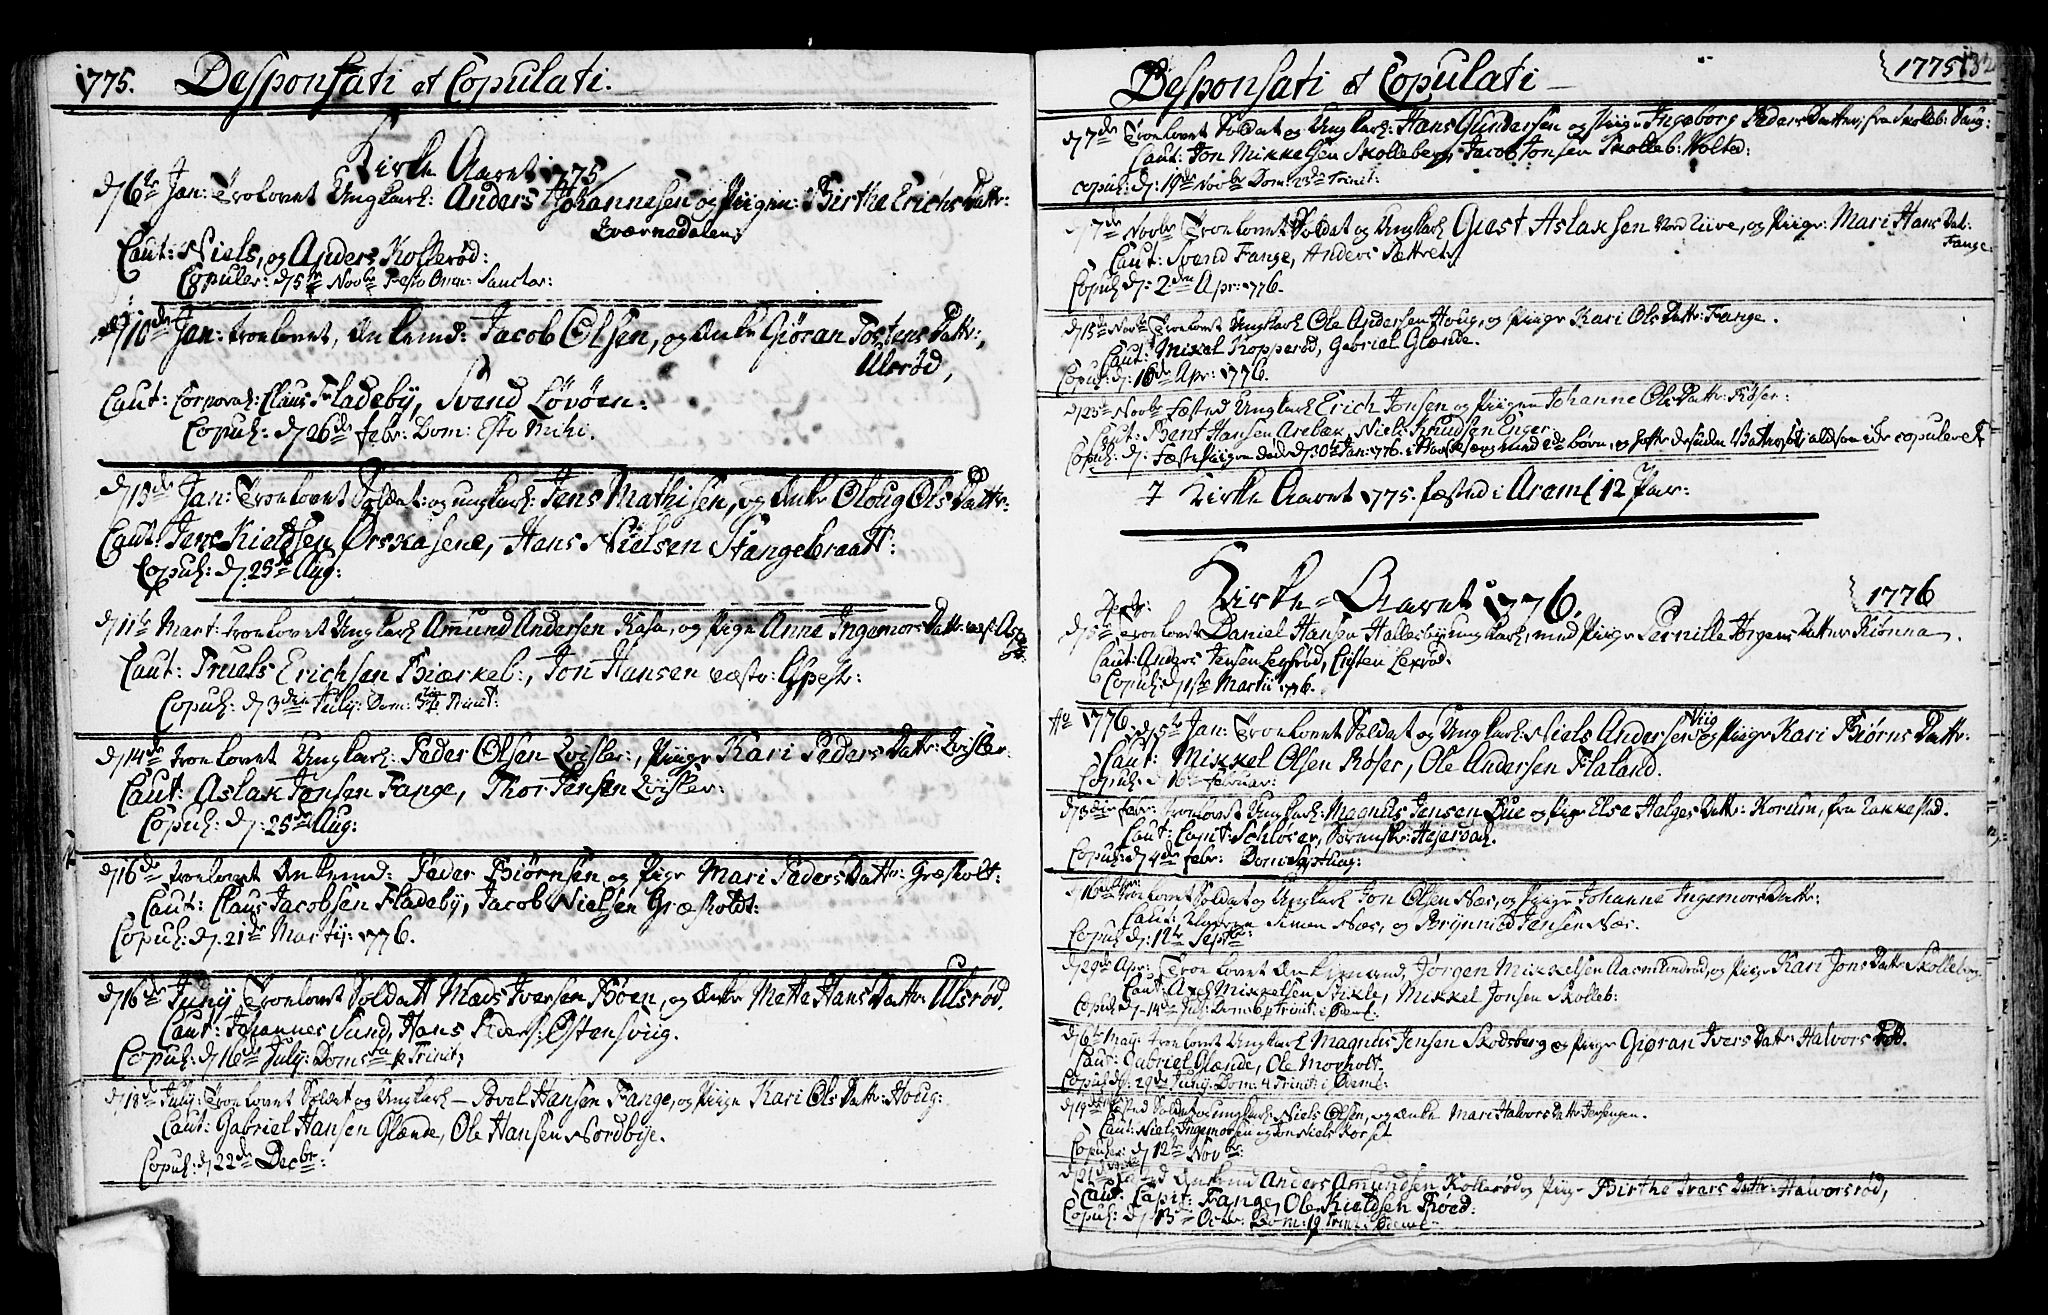 1775. Desponsati et Copulati.
Kirke Aaret 1775
d 6te Jan: Trolovet Ungkarl: Anders Johannesen og Piigen: Birthe Erichs Datter:
Kværnedalen:
Caut: Niels, og Anders Kollerød:
Copuler: d 5te Novbr Festo Omn: Sanctor:
d 10de Jan: troelovet, Enkemd: Jacob Olsen, og Enke Giøran Tostens Datter,
Ulsrød,
Caut: Corporal: Claus Fladeby, Svend Løvøen:
Copul: d 26de Febr: Dom: Esto Mihi.
d 13de Jan: Troelovet Soldat: og ungkarl: Jens Mathisen, og Enke Oloug Ols Datter
Caut: Jens Kieldsen Ørskasene, Hans Nielsen Stangebraatt:
Copul: d 25de Aug:
d 11te Mart: troelovet Ungkarl Amund Andersen Kasa, og Pige Anne Ingemors Datter
Caut: Truels Erichsen Biærkeb:, Jon Hansen
Copul: d 3die July: Dom: Trinit:
d 14de troelovet Ungkarl: Peder Olsen Qvisler:, Piige Kari Peders Datter: Qvisler
Caut: Aslak Jonsen Fange, Thor Jensen Qvisler:
Copul: d: 25de Aug:
d 16de troelovet Enkemd: Peder Biørnsen og Pige Mari Peders Datter: Græsholt:
Caut: Claus Jacobsen Fladeby, Jacob Nielsen Græsholdt:
Copul: d: 21de Martij: 1776.
d 16de Junij Troelovet Soldatt Mads Iversen Bøen, og Enke Mette Hans Datter Ulsrød.
Caut: Johannes Sund, Hans Peders: Østensviig.
Copul: d 16de July: Dom 5ta p Trinit,
d 18de July: Troelovet Soldat og Ungkarl – Povel Hansen Fange, og Piige Kari Ols Datter Houg:
Caut: Gabriel Hansen Glænde, Ole Hansen Nordbye.
Copul: d 22de Decbr:
Desponsati et Copulati 1775 132
d 7de Troelovet Soldat og Ungkarl: Hans Gundersen og Piige Ingeborg Peders Datter, fra Skolleb:
Caut: Jon Mikkelsen Skolleberg, Jacob Jonsen Skolleb: Holted:
Copul: d: 19de Novbr Dom: 23de Trinit:
d 7de Novbr Troelovet Soldat og Ungkarl Giest Aslaksen Nord Liive, og Piige: Mari Hans Dat:
Fange:
Caut: Svend Fange, Anders Sættret
Copul d: 2den Apr: 1776.
d 13de Novbr Troelovet Ungkarl Ole Andersen Houg, og Piige Kari Ols Datter Fange.
Caut: Mikel Kopperød, Gabriel Glænde.
Copul: d: 16de Apr: 1776.
d 23de Novbr Fæsted Ungkarl Erich Jonsen og Piigen Johanne Ols Datter: Røser:
Caut: Bent Hansen Arebæk, Niels Knudsen Enger
Copul: d: Fæstepiigen døde d 30te Jan: 1776. i Barselseng med 1te Barn, og hafte desuden altsaa ei copuleret
I Kirke Aaret 1775. fæsted i Aremk 12 Par:
Kirke-Aaret 1776. 1776
d 5te Decbr: Troelovet Daniel Hansen Hallesbyungkarl, med Piige Pernille Jørgens Datter Kiønna.
Caut: Anders Jensen Lexrød, Cristen Lexrød.
Copul: d 1ste Martii 1776.
Ao 1776 d 5te Jan: Troelovet Soldat og Ungkarl: Niels Andersen Viig og Piige Kari Biørns Datter:
Caut: Mikkel Olsen Røser, Ole Andersen Flaland.
Copul: d 16de Februar:
d 3die Febr: Troelovet Ungkarl: Magnus Jensen Bue og Pige Else Helges Datter: Korum, fra Rakkestad.
Caut: Capt: Schlører, Sorenskr: Hejerdal.
Copul: d 4de Febr: Dom: Septuag:
d 16de troelovet Soldat og Ungkarl Jon Olsen Næs, og Piige Johanne Ingemors Datter:
Caut: Simen Næs, og Brynnild Jensen Næs.
Copul d: 12te Septbr:
d 29de Apr: Troelovet Enkemand, Jørgen Mikkelsen Aasmundrød, og Piige Kari Jons Datter Skolleberg
Caut: Axel Mikkelsen Stikle, Mikkel Jonsen Skolleb:
Copul d 14de Jul: Dom: 6 p Trinit: i Øiem:
d 6te Maij: troelovet Ungkarl Magnus Jensen Skodsberg og Piige Giøran Ivers Datter Halvorsrød.
Caut: Gabriel Glænde, Ole Movholt
Copul d: 29de Junij: Dom: 4 Trinit: i Øiem:
d 19de Fæsted Soldat og ungkarl: Niels Olsen, og Enke Mari Halvors Datter Jørgengen.
Caut: Niels Ingemorsen og Jon Niels Korset
Copuler: d 12te Novbr:
d 21de Fæsted Enkemd Anders Amundsen Kollerød og Piige Birthe Ivars Datter: Halvorsrød,
Caut: Capit: Fange, Ole Kieldsen Brøed:
Copul: d 13de Octbr: Dom: 19 Trinit: i Øiem: